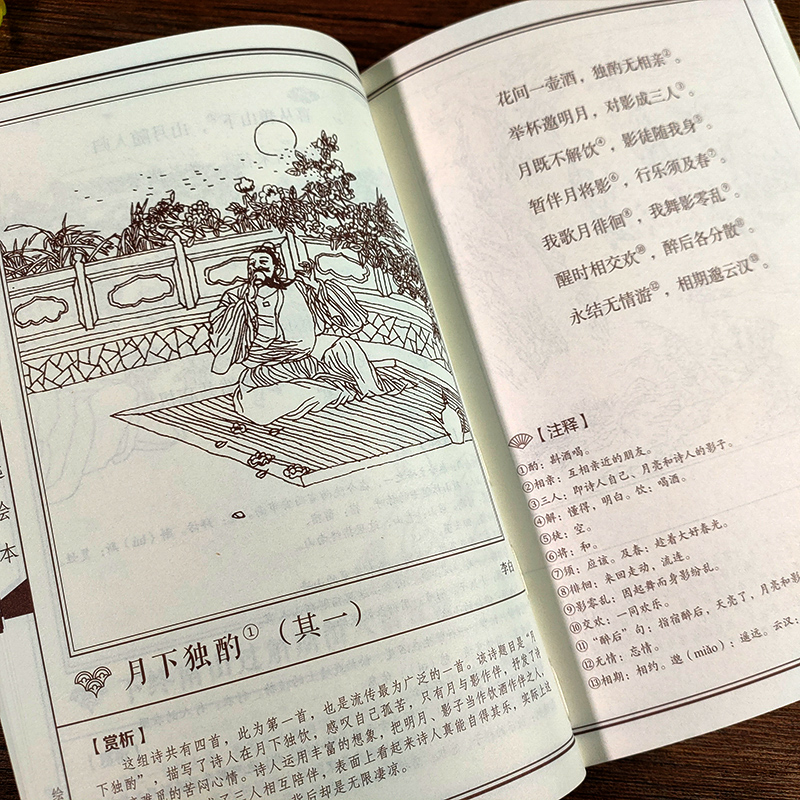 绘
本
李白
月下独酌①（其一）
【赏析】
这组诗共有四首，此为第一首，也是流传最为广泛的一首。该诗题目是“月
下独酌”，描写了诗人在月下独饮，感叹自己孤苦，只有月与影作伴，抒发了
难觅的苦闷心情。诗人运用丰富的想象，把明月、影子当作饮酒作伴之人，
了三人相互陪伴，表面上看起来诗人真能自得其乐，实际上
背后却是无限凄凉。
绘
花间一壶酒，独酌无相亲②。
举杯邀明月，对影成三人③。
月既不解饮④，影徒随我身⑤。
暂伴月将影⑥，行乐须及春⑦。
我歌月徘徊⑧，我舞影零乱⑨。
醒时相交欢⑩，醉后各分散⑪。
永结无情游⑫，相期邈云汉⑬。
【注释】
①酌：斟酒喝。
②相亲：互相亲近的朋友。
③三人：即诗人自己、月亮和诗人的影子。
④解：懂得，明白。饮：喝酒。
⑤徒：空。
⑥将：和。
⑦须：应该。及春：趁着大好春光。
⑧徘徊：来回走动，流连。
⑨影零乱：因起舞而身影纷乱。
⑩交欢：一同欢乐。
⑪“醉后”句：指宿醉后，天亮了，月亮和影
⑫无情：忘情。
⑬相期：相约。邈（miǎo）：遥远。云汉：